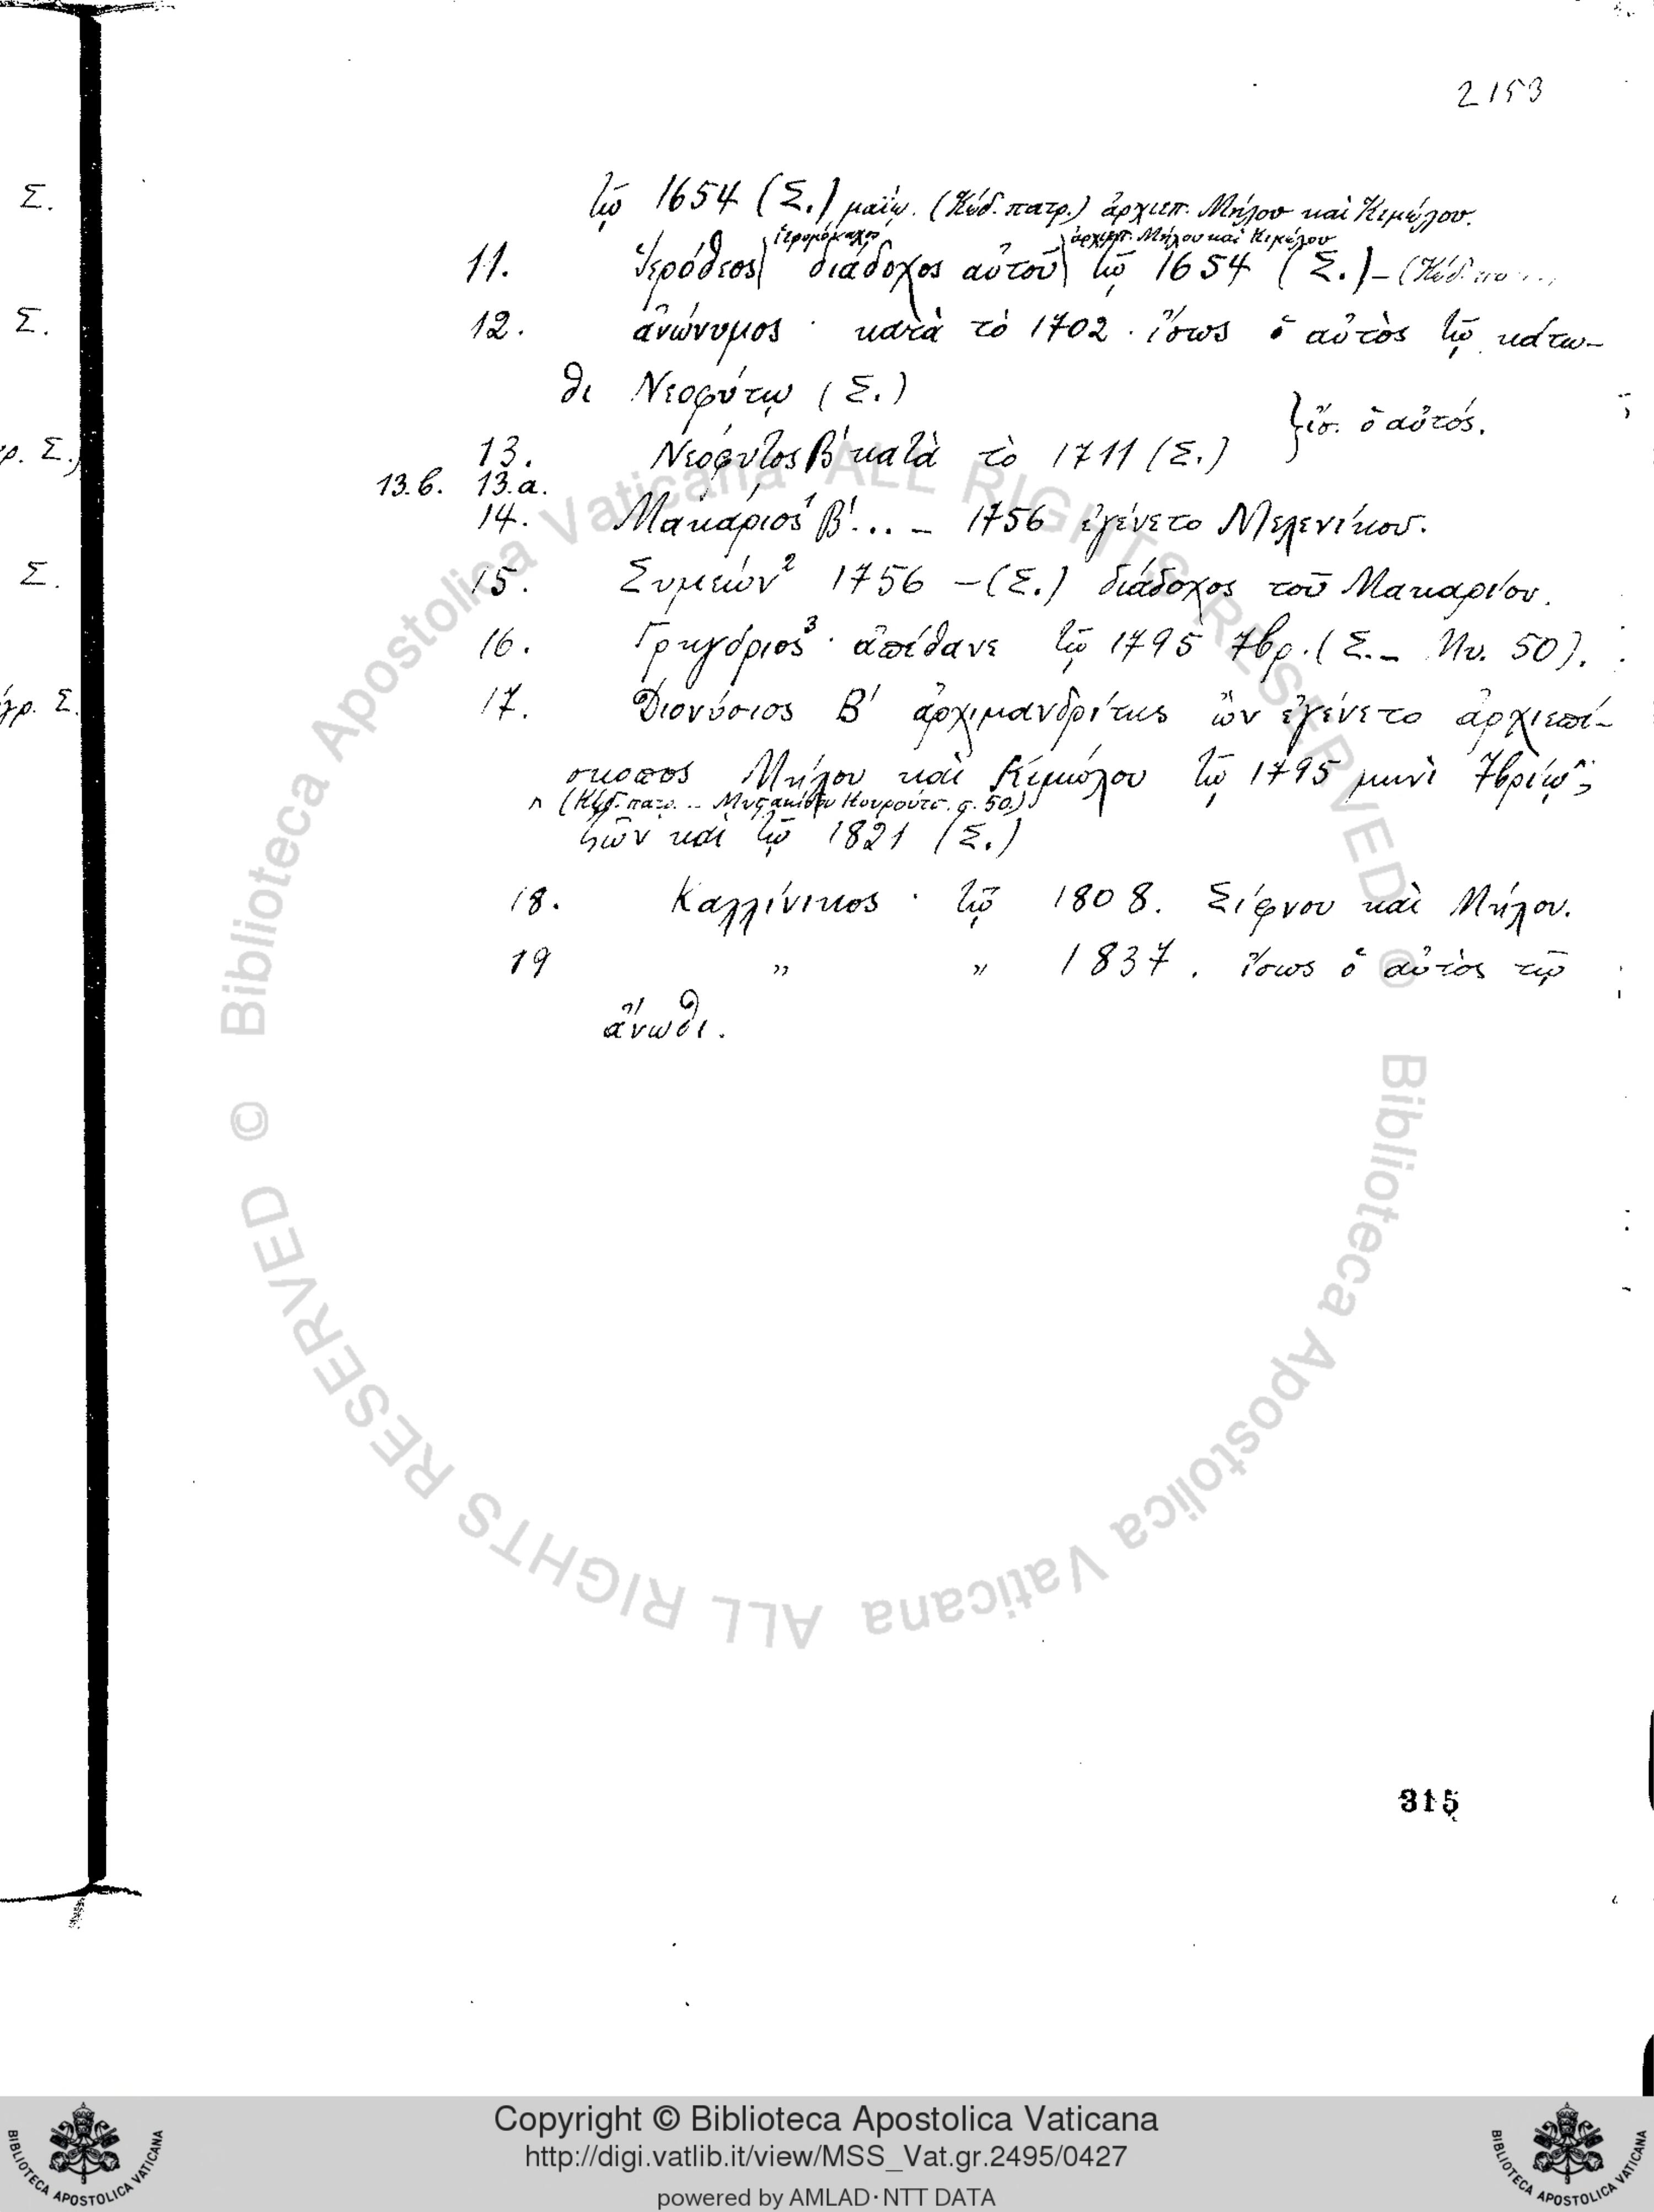 2153
Σ.
τῷ 1654 (Σ.) μαΐῳ. (Κώδ. πατρ.) ἀρχιεπ. Μήλου καὶ Κιμώλου.
ἱερομόναχος ἀρχιεπ. Μήλου καὶ Κιμώλου
11. Ἱερόθεος διάδοχος αὐτοῦ τῷ 1654 (Σ.) – (Κώδ.
Σ.
12. ἀνώνυμος · κατὰ τὸ 1702 · ἴσως ὁ αὐτὸς τῷ κάτω-
θι Νεοφύτῳ (Σ.)
} ἴσ. ὁ αὐτός.
ρ. Σ.
13. Νεόφυτος Β' κατὰ τὸ 1711 (Σ.)
13.β. 13.α.
14. Μακάριος¹ Β'... – 1756 ἐγένετο Μελενίκου.
Σ.
15. Συμεών² 1756 – (Σ.) διάδοχος τοῦ Μακαρίου.
16. Γρηγόριος³ · ἀπέθανε τῷ 1795 7βρ. (Σ. – Μυ. 50).
γρ. Σ.
17. Διονύσιος Β' ἀρχιμανδρίτης ὢν ἐγένετο ἀρχιεπί-
σκοπος Μήλου καὶ Κιμώλου τῷ 1795 μηνὶ 7βρίῳ^;
^ (Κώδ. πατρ. .. Μυστακίδου Κουρούτσ. σ. 50.)
ζῶν καὶ τῷ 1821 (Σ.)
18. Καλλίνικος · τῷ 1808. Σίφνου καὶ Μήλου.
19 „ „ 1837. ἴσως ὁ αὐτὸς τῷ
ἄνωθι.
315
Biblioteca Apostolica Vaticana ALL RIGHTS RESERVED ©
Biblioteca Apostolica Vaticana ALL RIGHTS RESERVED ©
BIBLIOTECA APOSTOLICA VATICANA
Copyright © Biblioteca Apostolica Vaticana
http://digi.vatlib.it/view/MSS_Vat.gr.2495/0427
powered by AMLAD·NTT DATA
BIBLIOTECA APOSTOLICA VATICANA